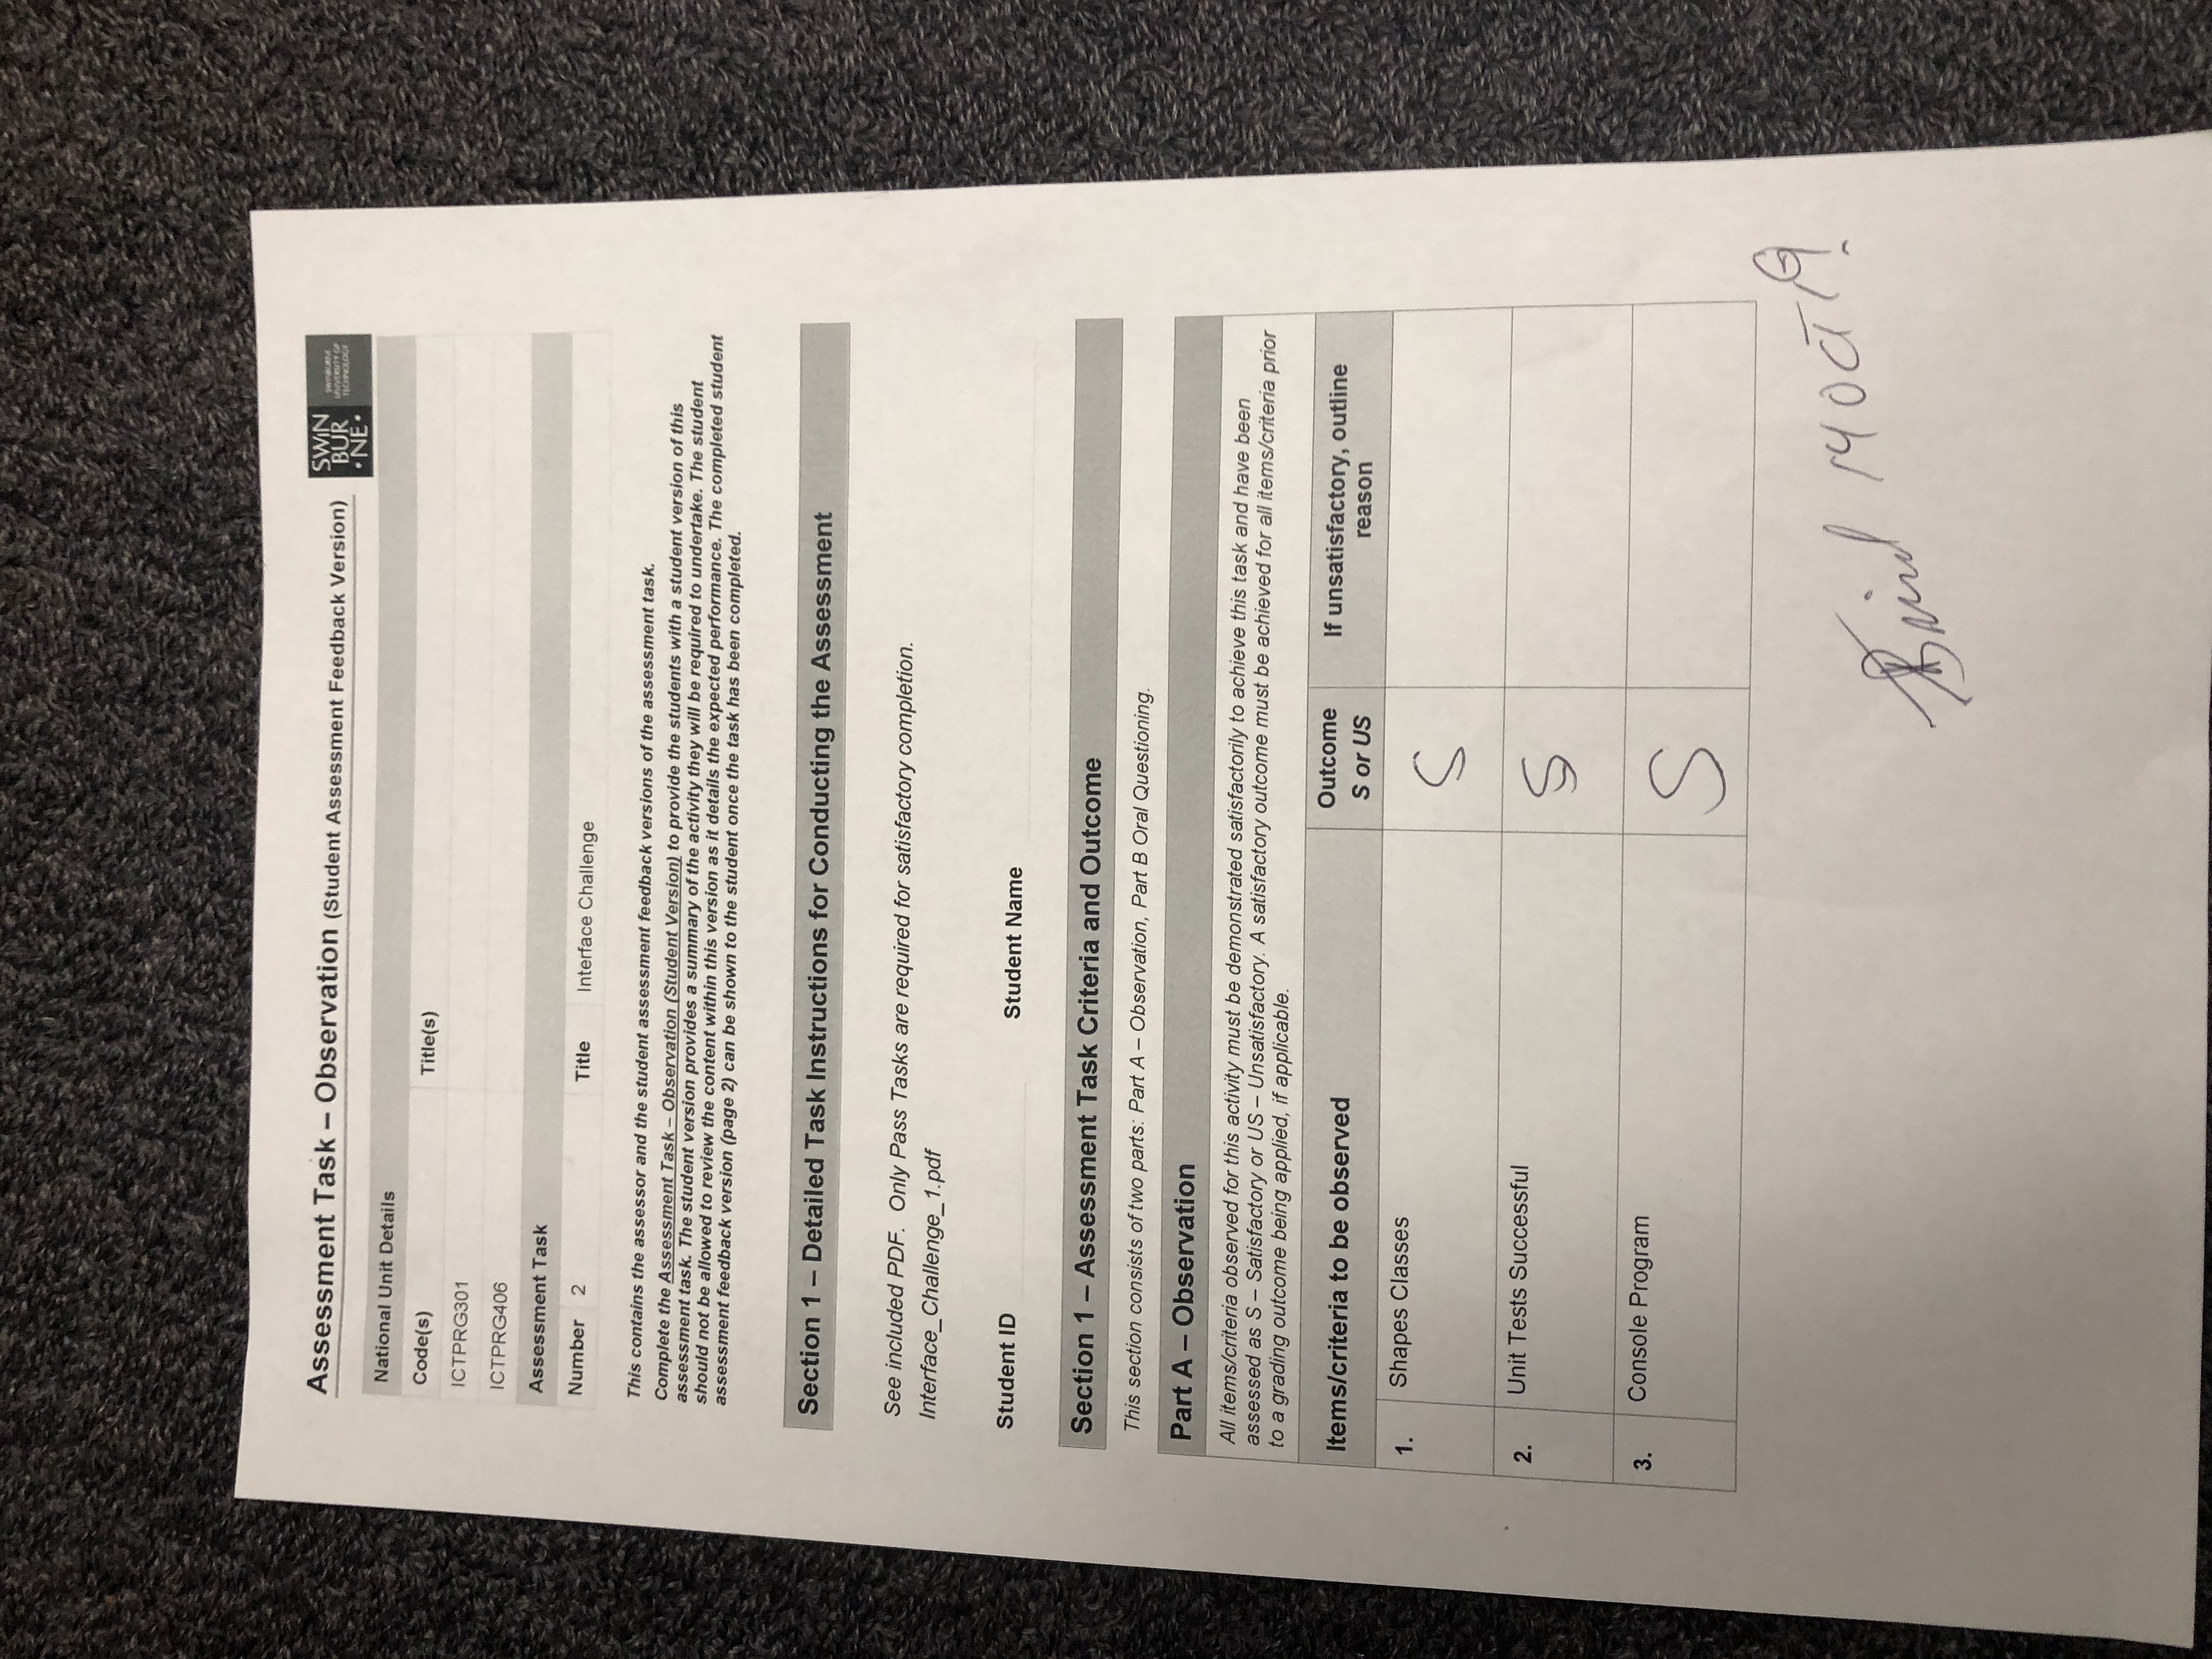 Assessment Task – Observation (Student Assessment Feedback Version)
SWIN
BUR
• NE •
SWINBURNE
UNIVERSITY OF
TECHNOLOGY
National Unit Details
Code(s) Title(s)
ICTPRG301
ICTPRG406
Assessment Task
Number 2 Title Interface Challenge
This contains the assessor and the student assessment feedback versions of the assessment task.
Complete the Assessment Task – Observation (Student Version) to provide the students with a student version of this
assessment task. The student version provides a summary of the activity they will be required to undertake. The student
should not be allowed to review the content within this version as it details the expected performance. The completed student
assessment feedback version (page 2) can be shown to the student once the task has been completed.
Section 1 – Detailed Task Instructions for Conducting the Assessment
See included PDF. Only Pass Tasks are required for satisfactory completion.
Interface_Challenge_1.pdf
Student ID Student Name
Section 1 – Assessment Task Criteria and Outcome
This section consists of two parts: Part A – Observation, Part B Oral Questioning.
Part A – Observation
All items/criteria observed for this activity must be demonstrated satisfactorily to achieve this task and have been
assessed as S – Satisfactory or US – Unsatisfactory. A satisfactory outcome must be achieved for all items/criteria prior
to a grading outcome being applied, if applicable.
Items/criteria to be observed
Outcome
S or US
If unsatisfactory, outline
reason
1. Shapes Classes S
2. Unit Tests Successful S
3. Console Program S
Baird 14 Oct 19